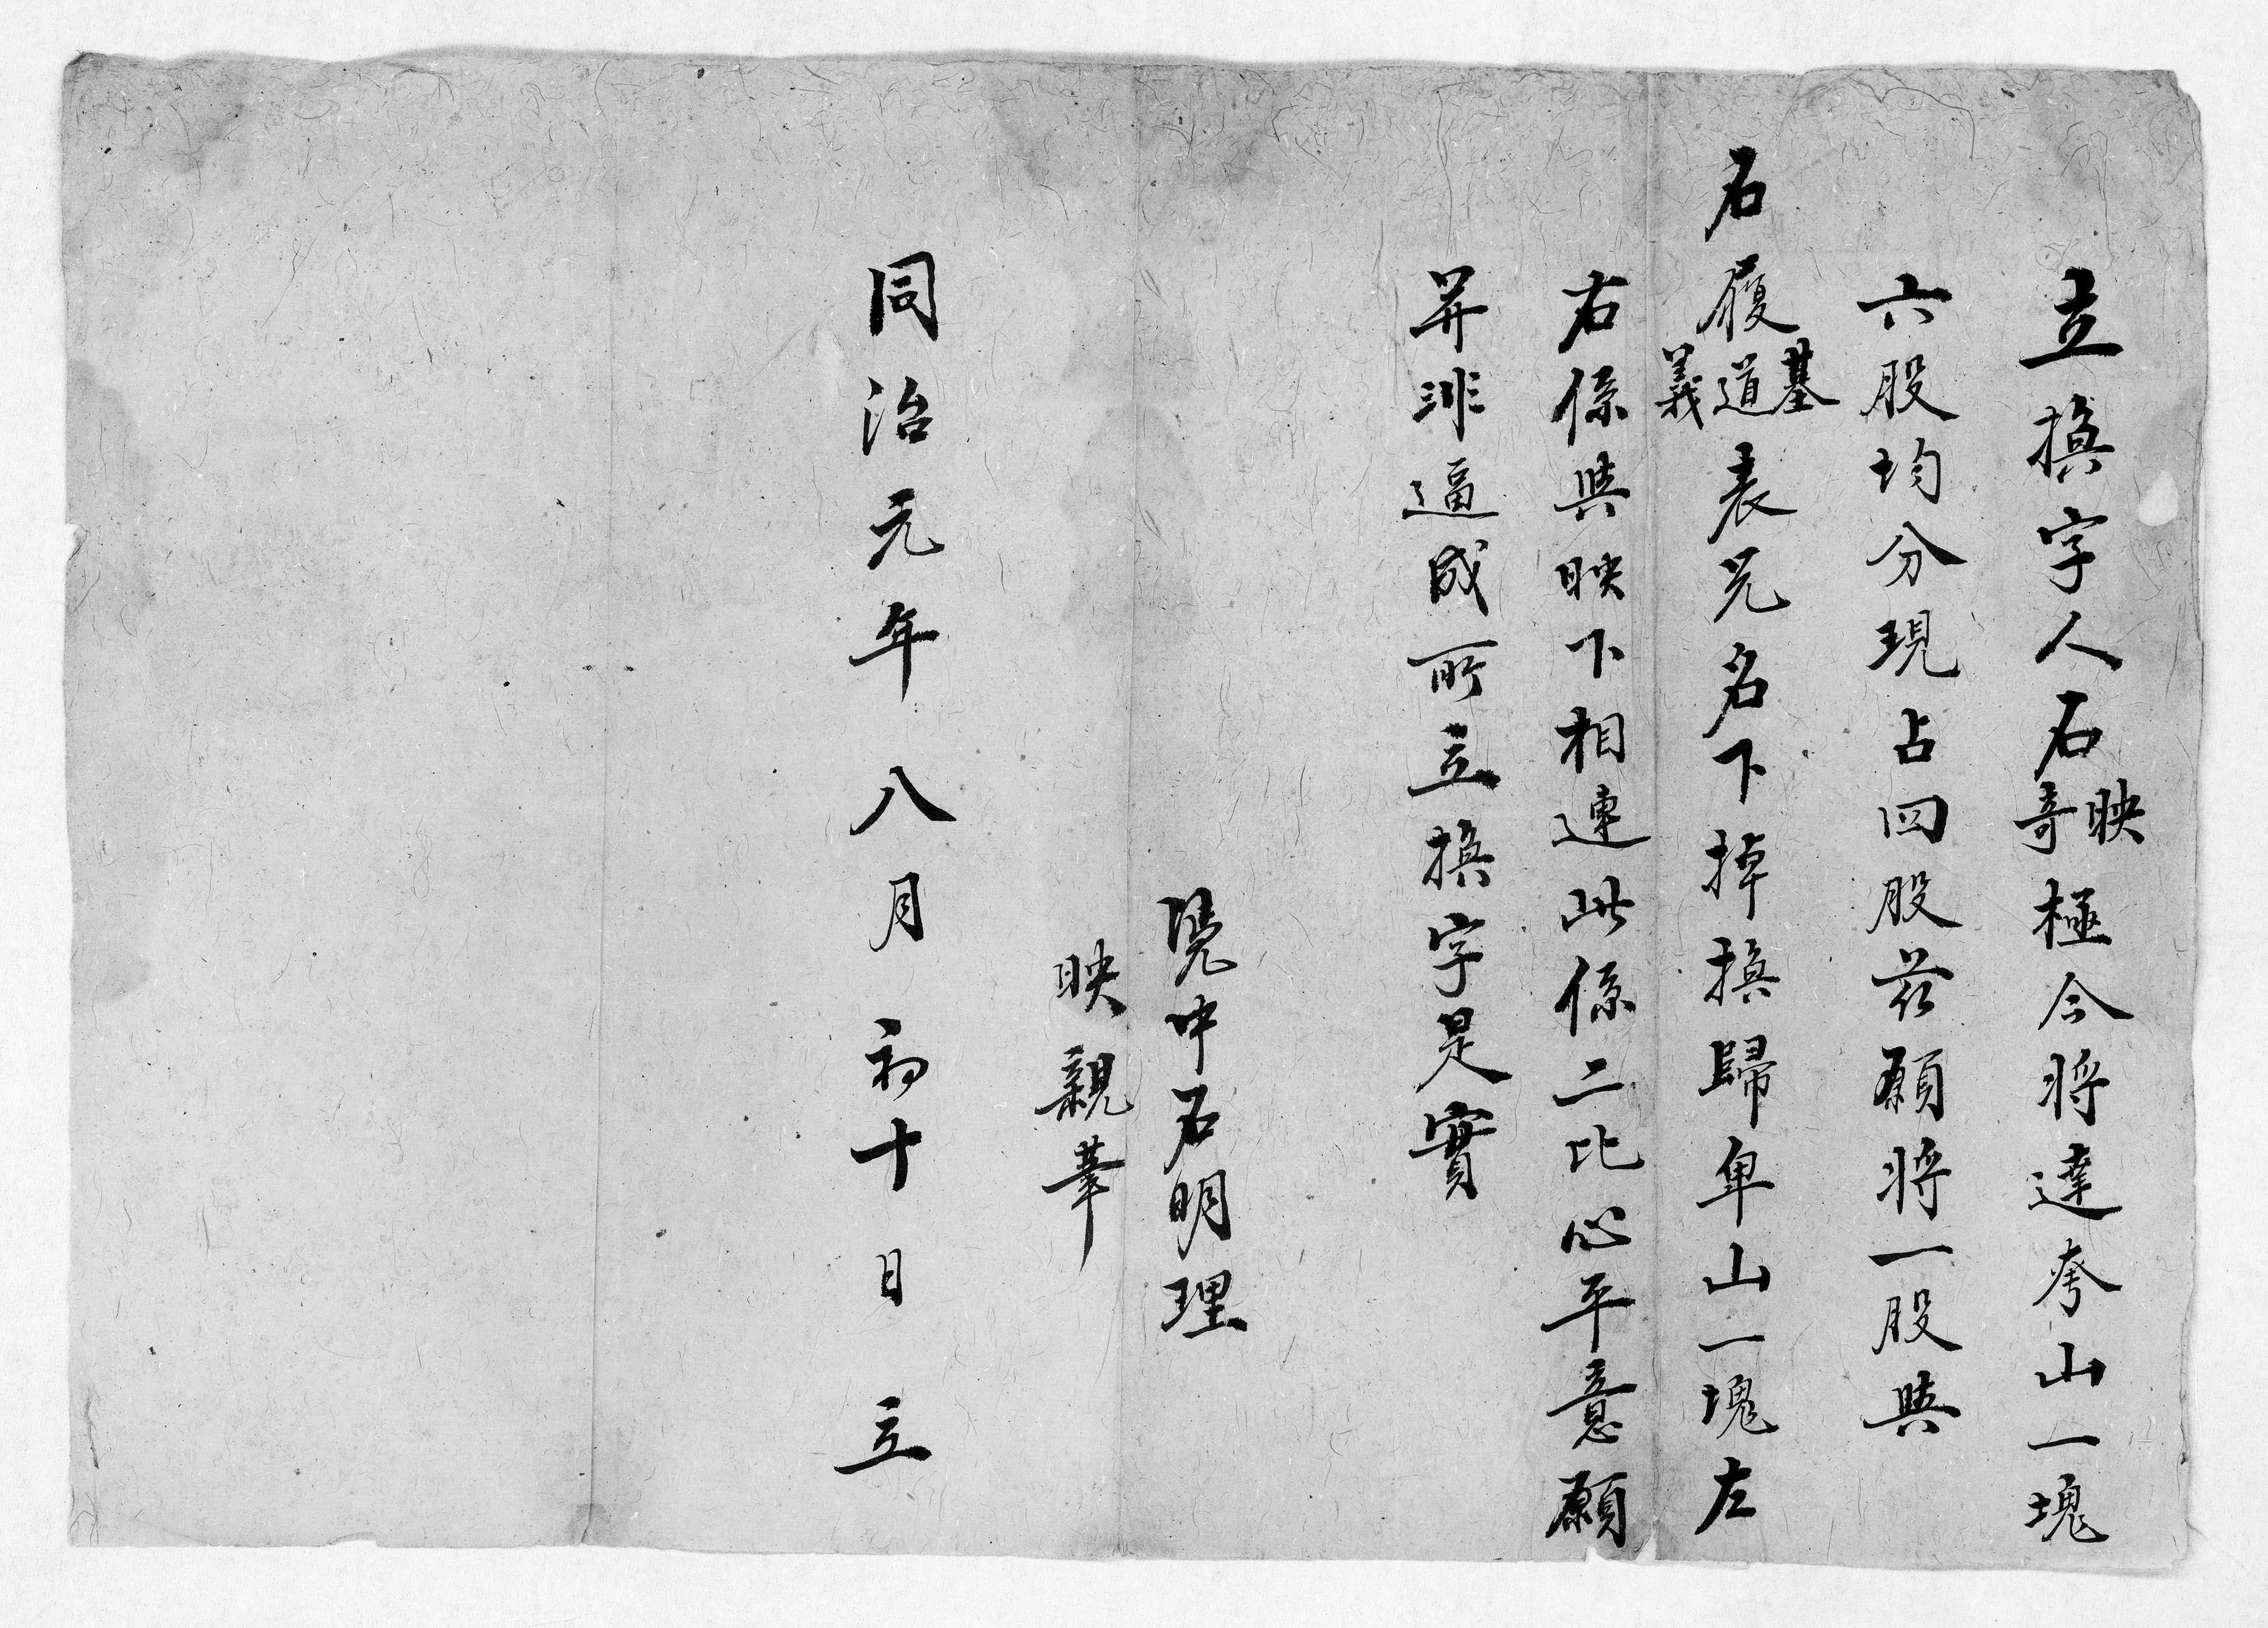 立換字人石映奇極今將達夸山一塊
六股均分現占四股茲願將一股與
石履基道義表兄名下掉換歸卑山一塊左
右係與映下相連此係二比心平意願
并非逼成所立換字是實
憑中石明理
映親筆
同治元年八月初十日立